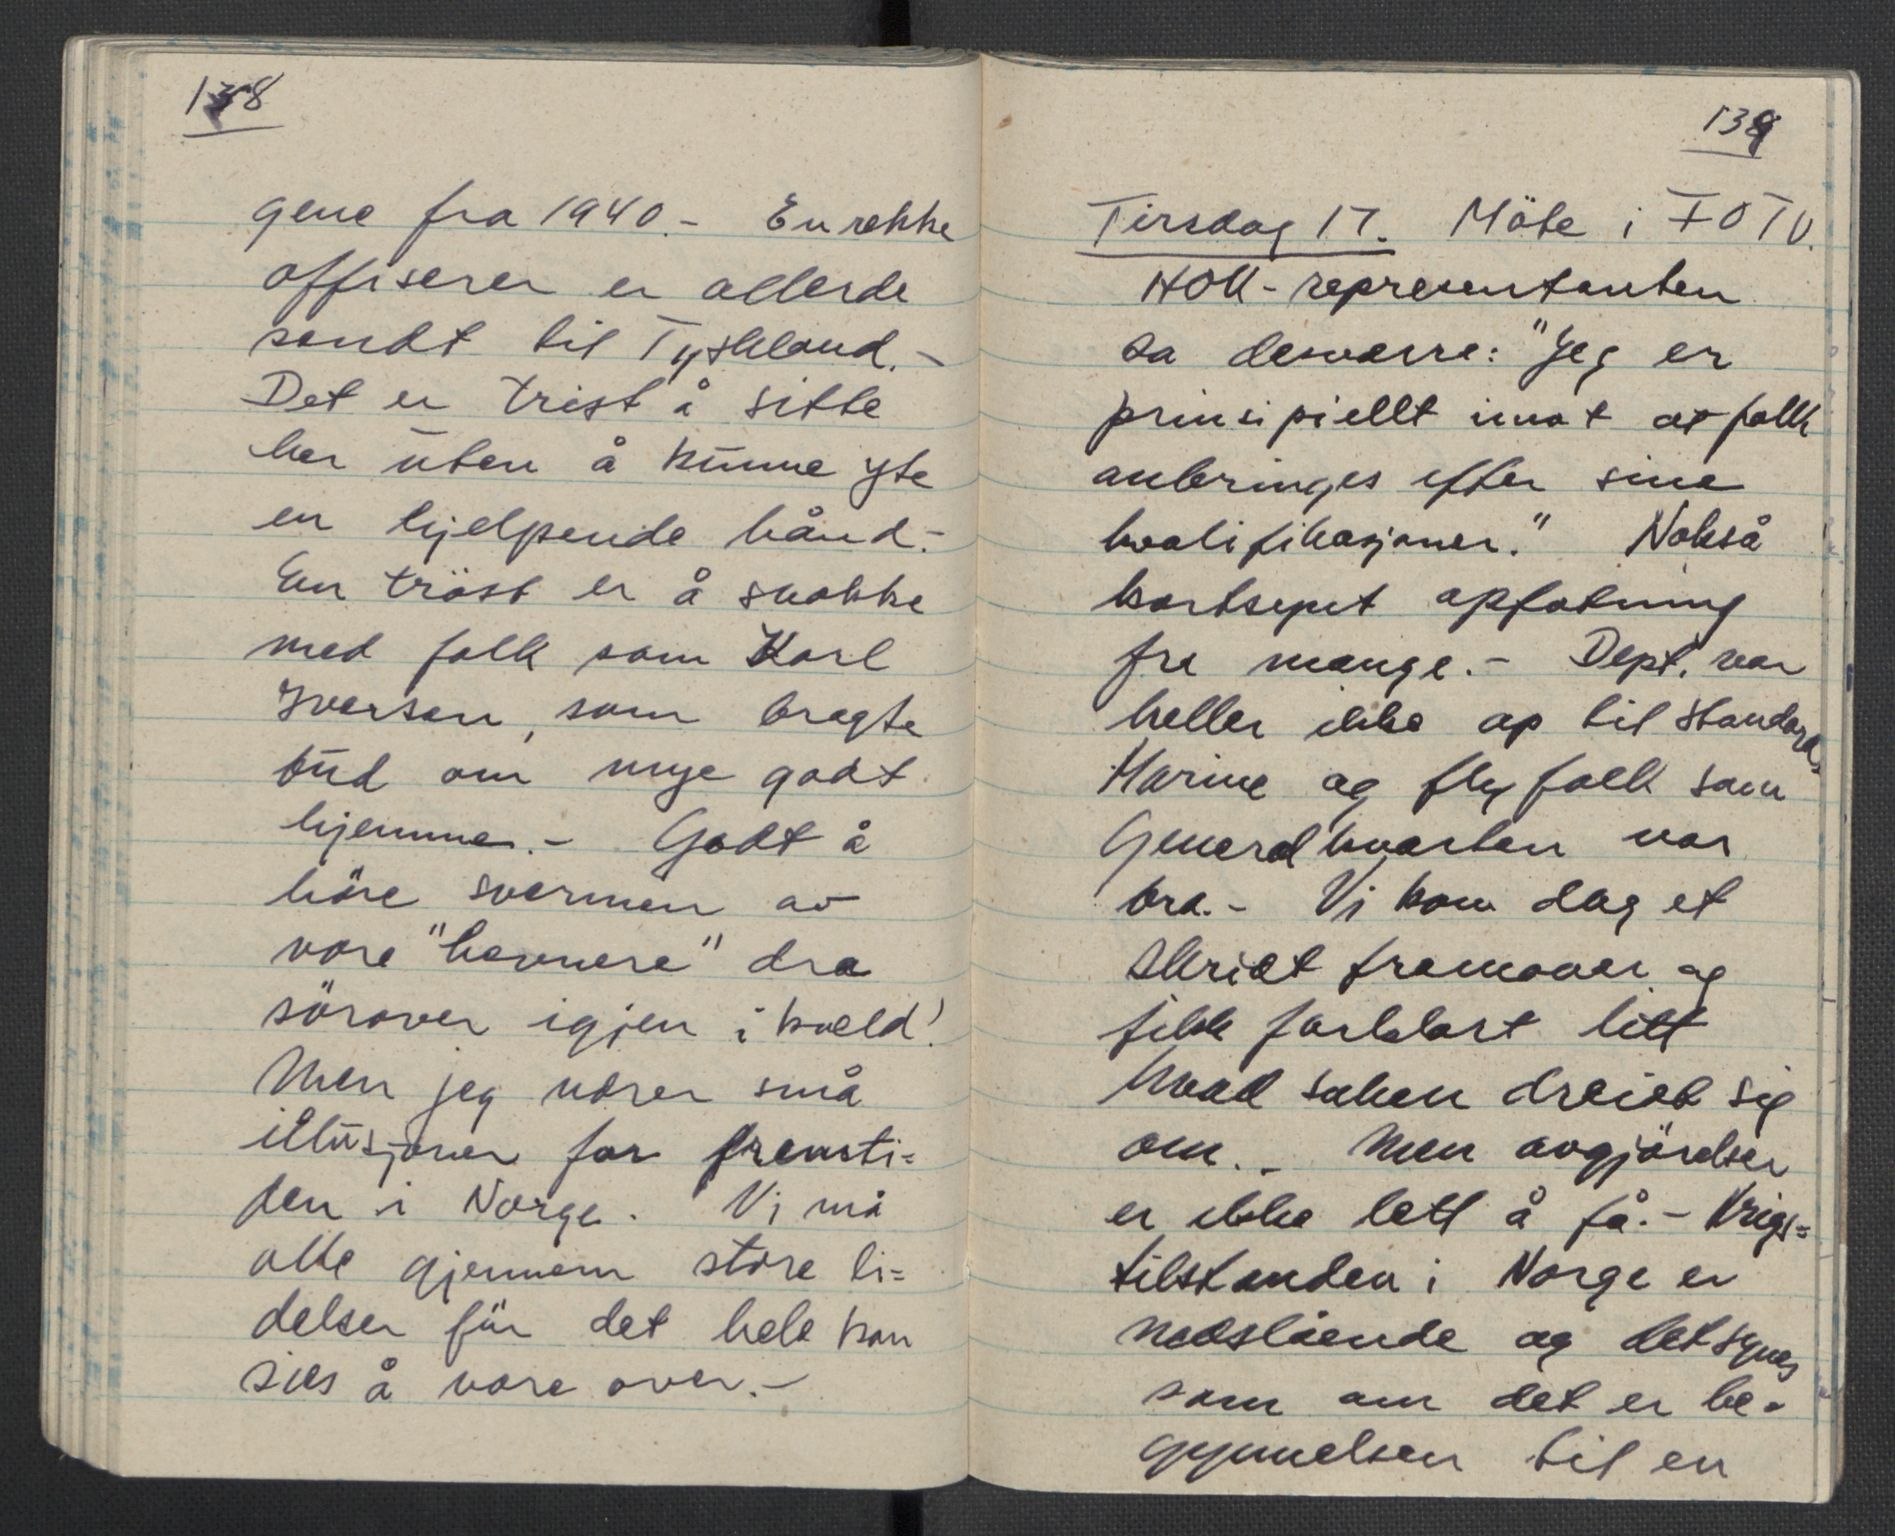 138
gene fra 1940.- En rekke
offiserer er allerede
sendt til Tyskland.-
Det er trist å sitte
her uten å kunne yte
en hjelpende hånd.-
En tröst er å snakke
med folk som Karl
Iversen, som bragte
bud om mye godt
hjemme.- Godt å
höre svermen av
vore "hevnere" dra
sörover igjen i kveld!
Men jeg nærer små
illusjoner for fremti=
den i Norge. Vi må
alle gjennem store li=
delser för det hele kan
sies å være over.-
139
Tirsdag 17. Möte i FOTU.
HOK-representanten
sa desværre: "Jeg er
prinsipiellt imot at folk
anbringes efter sine
kvalifikasjoner." Nokså
kortsynt opfatning
fra mange.- Dept. var
heller ikke op til standard.
Marine og flyfolk som
Generalkvarten var
bra.- Vi kom dag et
skridt fremover og
fikk forklart litt
hvad saken dreiet sig
om.- Men avgjörelser
er ikke lett å få.- Krigs=
tilstanden i Norge er
nedslående og det synes
som om det er be-
gynnelsen til en